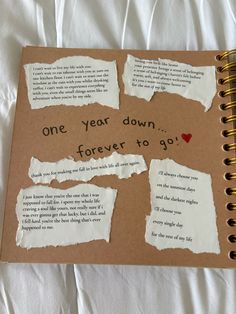 I can't wait to live my life with you.
I can't wait to eat takeout with you at 2am on
our kitchen floor. I can't wait to stare out the
window at the rain with you whilst drinking
coffee. I can't wait to experience everything
with you, even the small things seem like an
adventure when you're by my side.
your presence brings a sense of belonging
a sense of belonging i haven't felt before
warm, soft, and always welcomed
it's you i want to come home to
for the rest of my life
one year down...
forever to go!
thank you for making me fall in love with life all over again.
I just know that you're the one that I was
supposed to fall for. i spent my whole life
craving a soul like yours, not really sure if i
was ever gonna get that lucky. but i did, and
i fell hard. you're the best thing that's ever
happened to me.
i'll always choose you
on the sunniest days
and the darkest nights
i'll choose you
every single day
for the rest of my life